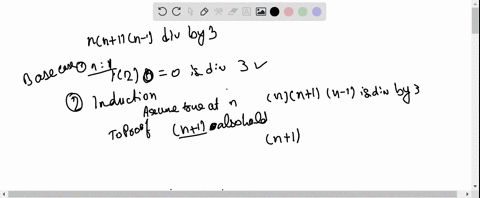 n(n+1)(n-1) div by 3
Base case ① n=1 1(2) 0 = 0 is div 3 ✓
② Induction
Assume true at n (n)(n+1)(n-1) is div by 3
To Proof (n+1) also hold
(n+1)